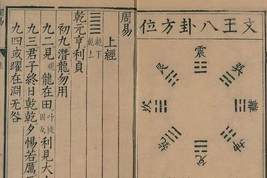 文王八卦方位
震
巽
離
坤
兌
乾
坎
艮
周易
上經
乾元亨利貞
初九潛龍勿用
九二見龍在田利見大
九三君子終日乾乾夕惕若厲
九四或躍在淵无咎